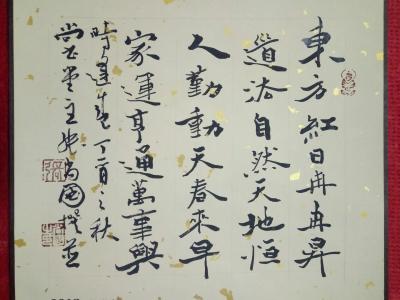 東方紅日冉冉昇
道法自然天地恒
人勤動天春來早
家運亨通萬事興
時逢
丁酉之秋
尚書堂主
國撰並